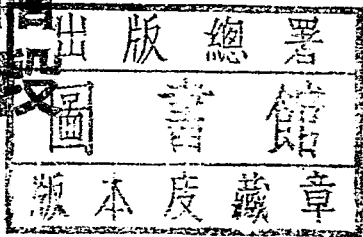 出版總署
圖書館
版本庋藏章